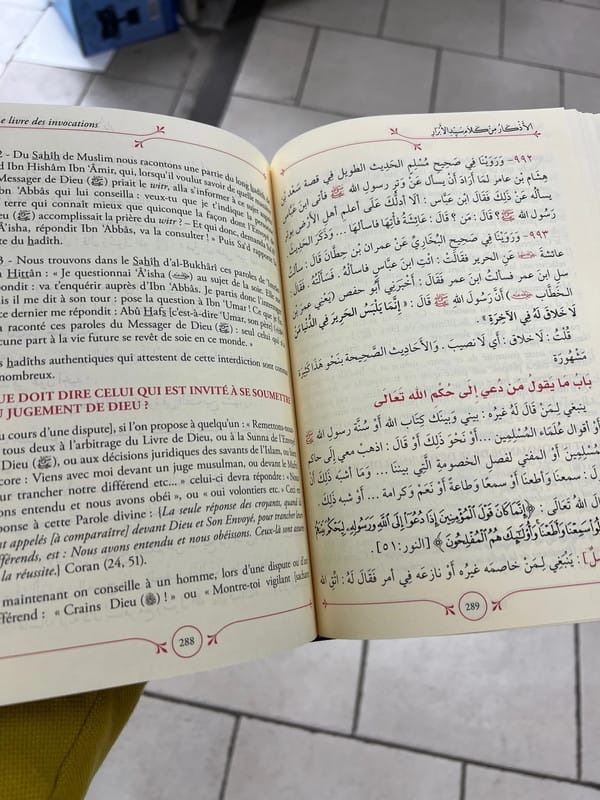 e livre des invocations
2 - Du Sahîh de Muslim nous racontons une partie du long hadîth
d Ibn Hishâm Ibn ‘Âmir, qui, lorsqu'il voulut savoir de quelle manière
Messager de Dieu (ﷺ) priait le witr, alla s'informer à ce sujet auprès
Ibn ‘Abbâs qui lui conseilla : veux-tu que je t'indique la personne
terre qui connaît mieux que quiconque la façon dont l'Envoyé
ieu (ﷺ) accomplissait la prière du witr ? – Et qui donc, demanda-t-il
A'isha, répondit Ibn ‘Abbâs, va la consulter ! » Puis Sa'd rapporta
te du hadîth.
3 - Nous trouvons dans le Sahîh d'al-Bukhârî ces paroles de
n Hittân : « Je questionnai ‘Â'isha au sujet de la soie. Elle me
pondit : va t'enquérir auprès d'Ibn ‘Abbâs. Je partis donc l'interroger
ais il me dit à son tour : pose la question à Ibn ‘Umar ! Ce que je fis
ce dernier me répondit : Abû Hafs [c'est-à-dire ‘Umar, son père]
a raconté ces paroles du Messager de Dieu (ﷺ) : seul celui qui
cune part à la vie future se revêt de soie en ce monde. »
s hadîths authentiques qui attestent de cette interdiction sont connus
nombreux.
UE DOIT DIRE CELUI QUI EST INVITÉ À SE SOUMETTRE
U JUGEMENT DE DIEU ?
u cours d'une dispute], si l'on propose à quelqu'un : « Remettons-nous
tous deux à l'arbitrage du Livre de Dieu, ou à la Sunna de l'Envoyé
Dieu (ﷺ), ou aux décisions juridiques des savants de l'Islam, ou bien
core : Viens avec moi devant un juge musulman, ou devant le Mufti
ur trancher notre différend etc... » celui-ci devra répondre : « Nous
ons entendu et nous avons obéi », ou « oui volontiers etc. » Ceci en
ponse à cette Parole divine : {La seule réponse des croyants, quand ils
nt appelés [à comparaître] devant Dieu et Son Envoyé, pour trancher leurs
fférends, est : Nous avons entendu et nous obéissons. Ceux-là sont assurés
la réussite.} Coran (24, 51).
maintenant on conseille à un homme, lors d'une dispute ou d'un
fférend : « Crains Dieu ! » ou « Montre-toi vigilant [sachant
288
الأذكار من كلام سيد الأبرار
٩٩٢- وَرَوَيْنَا فِي صَحِيحِ مُسْلِمٍ الحَدِيثَ الطويل فِي قصة سَعْدِ بْنِ
هِشَامِ بْنِ عامر لمَّا أَرَادَ أَنْ يسأل عَنْ وَتْرِ رسولِ الله ﷺ فأتى ابنَ عباس
يسألُهُ عَنْ ذلكَ فَقَالَ ابنُ عباسٍ : ألا أدلُّكَ عَلَى أعلم أهلِ الأَرْضِ بِوتْرِ
رسولِ الله ﷺ؟ قالَ : مَنْ؟ قالَ : عَائِشَةُ فَأْتِهَا فَاسألْهَا... وَذَكَرَ الحَدِيثَ
٩٩٣- وَرَوَيْنَا فِي صَحِيحِ البُخَارِيِّ عَنْ عمران بْنِ حِطَّانَ قَالَ : سألتُ
عائشةَ عَنِ الحرير فَقالَتْ : ائْتِ ابنَ عَبَّاسٍ فَاسألْهُ. فَسَأَلْتُهُ. فقالَ :
سلِ ابنَ عمر فسألتُ ابنَ عمر فَقَالَ : أَخْبَرَنِي أَبُو حفص (يَعْنِي عمر بن
الخطَّاب) أَنَّ رَسُولَ اللهِ ﷺ قَالَ : «إِنَّمَا يَلْبَسُ الحَرِيرَ فِي الدُّنْيَا مَنْ
لَا خَلَاقَ لَهُ فِي الآخِرَةِ».
قُلْتُ : لَا خَلَاقَ : أَي لَا نَصِيبَ. وَالأَحَادِيثُ الصَّحِيحَةُ بِنَحْوِ هَذَا كَثِيرَةٌ
مَشْهُورَة
بابُ مَا يَقولُ مَنْ دُعيَ إلَى حُكْمِ الله تَعَالَى
يَنبَغِي لِمَنْ قَالَ لَهُ غَيْرُهُ : بيني وَبينَكَ كِتَابُ اللهِ أَوْ سُنَّة رَسُولِ الله ﷺ
أَوْ أقوال عُلَمَاءِ المُسْلِمِينَ... أَوْ نحوَ ذَلكَ أَوْ قَالَ : اذهب معي إلَى حاكم
المُسْلِمِينَ أَوْ المفتي لفصل الخصومةِ الَّتِي بيننا ... وَمَا أَشْبَهَ ذَلكَ أَنْ
: سمعنا وَأَطَعنا أَوْ سمعًا وطاعةً أَوْ نَعَمْ وَكرامة ... أَوْ شبه ذلك
قَالَ اللهُ تَعَالَى : ﴿إِنَّمَا كَانَ قَوْلَ الْمُؤْمِنِينَ إِذَا دُعُوا إِلَى اللَّهِ وَرَسُولِهِ لِيَحْكُمَ بَيْنَهُمْ
أَن يَقُولُوا سَمِعْنَا وَأَطَعْنَا وَأُولَئِكَ هُمُ الْمُفْلِحُونَ﴾ [النور: ٥١].
: يَنْبَغِي لِمَنْ خاصمه غَيْرُهُ أَوْ نازعَه فِي أمر فَقَالَ لَهُ : اتَّقِ الله
289